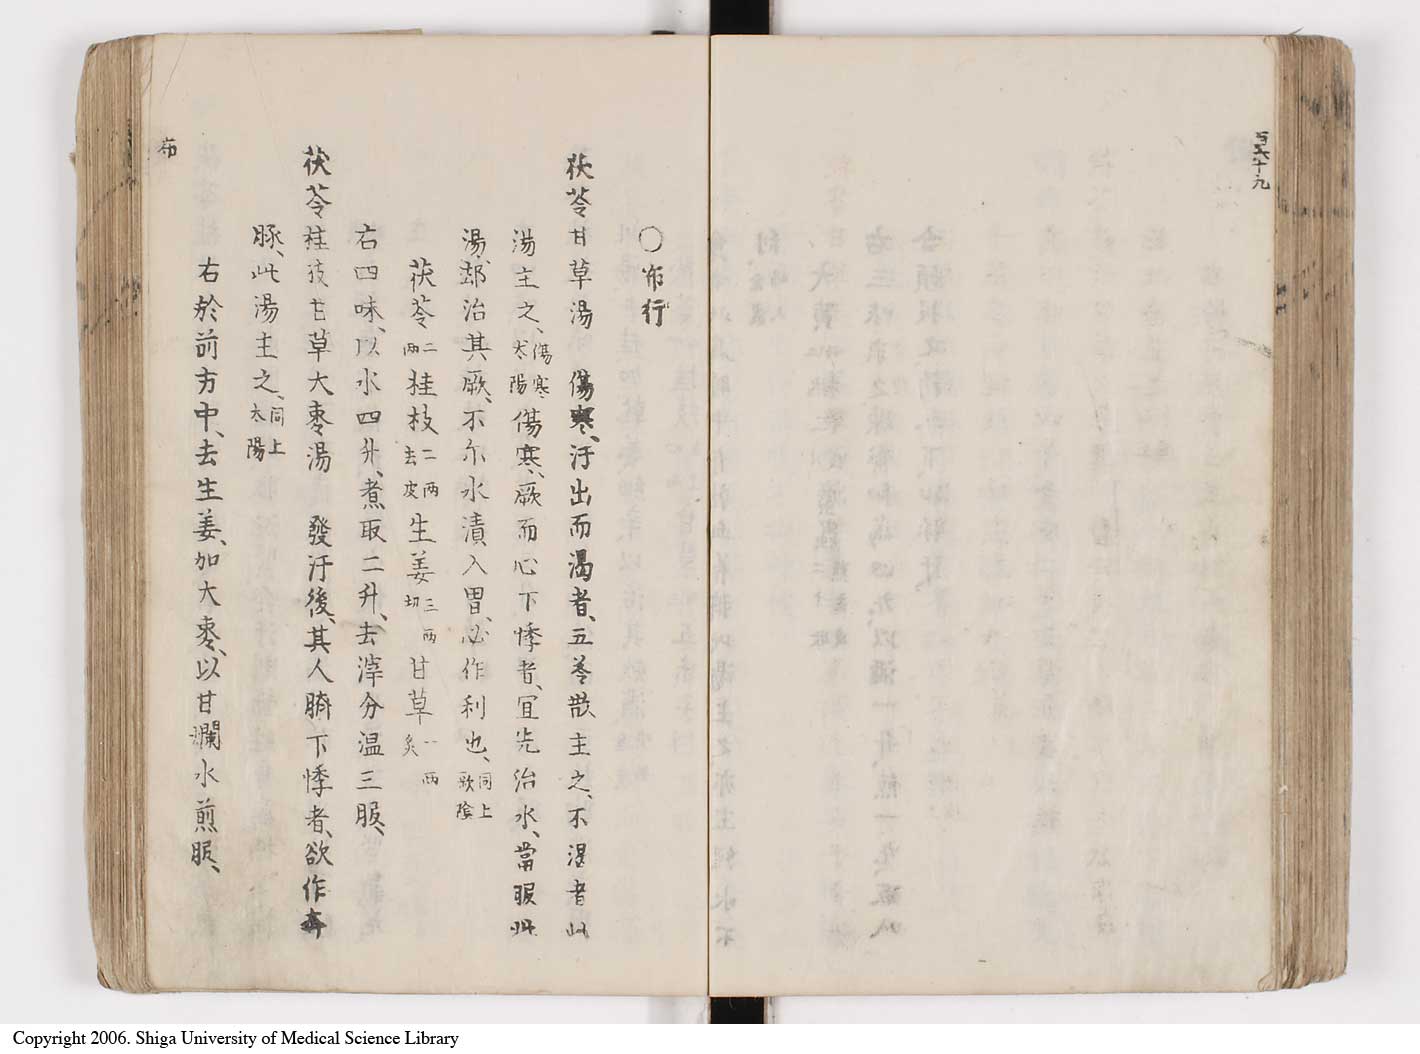 百六十九
○布行
茯苓甘草湯 傷寒、汗出而渴者、五苓散主之、不渴者此
湯主之、傷寒太陽 傷寒、厥而心下悸者、冝先治水、當服此
湯、却治其厥、不尓水漬入胃、必作利也、同上厥陰
茯苓二兩 桂枝二兩去皮 生姜三兩切 甘草一兩炙
右四味、以水四升、煮取二升、去滓分温三服、
茯苓桂枝甘草大棗湯 發汗後、其人臍下悸者、欲作奔
豚、此湯主之、同上太陽
右於前方中、去生姜、加大棗、以甘爛水煎服、
布
Copyright 2006. Shiga University of Medical Science Library